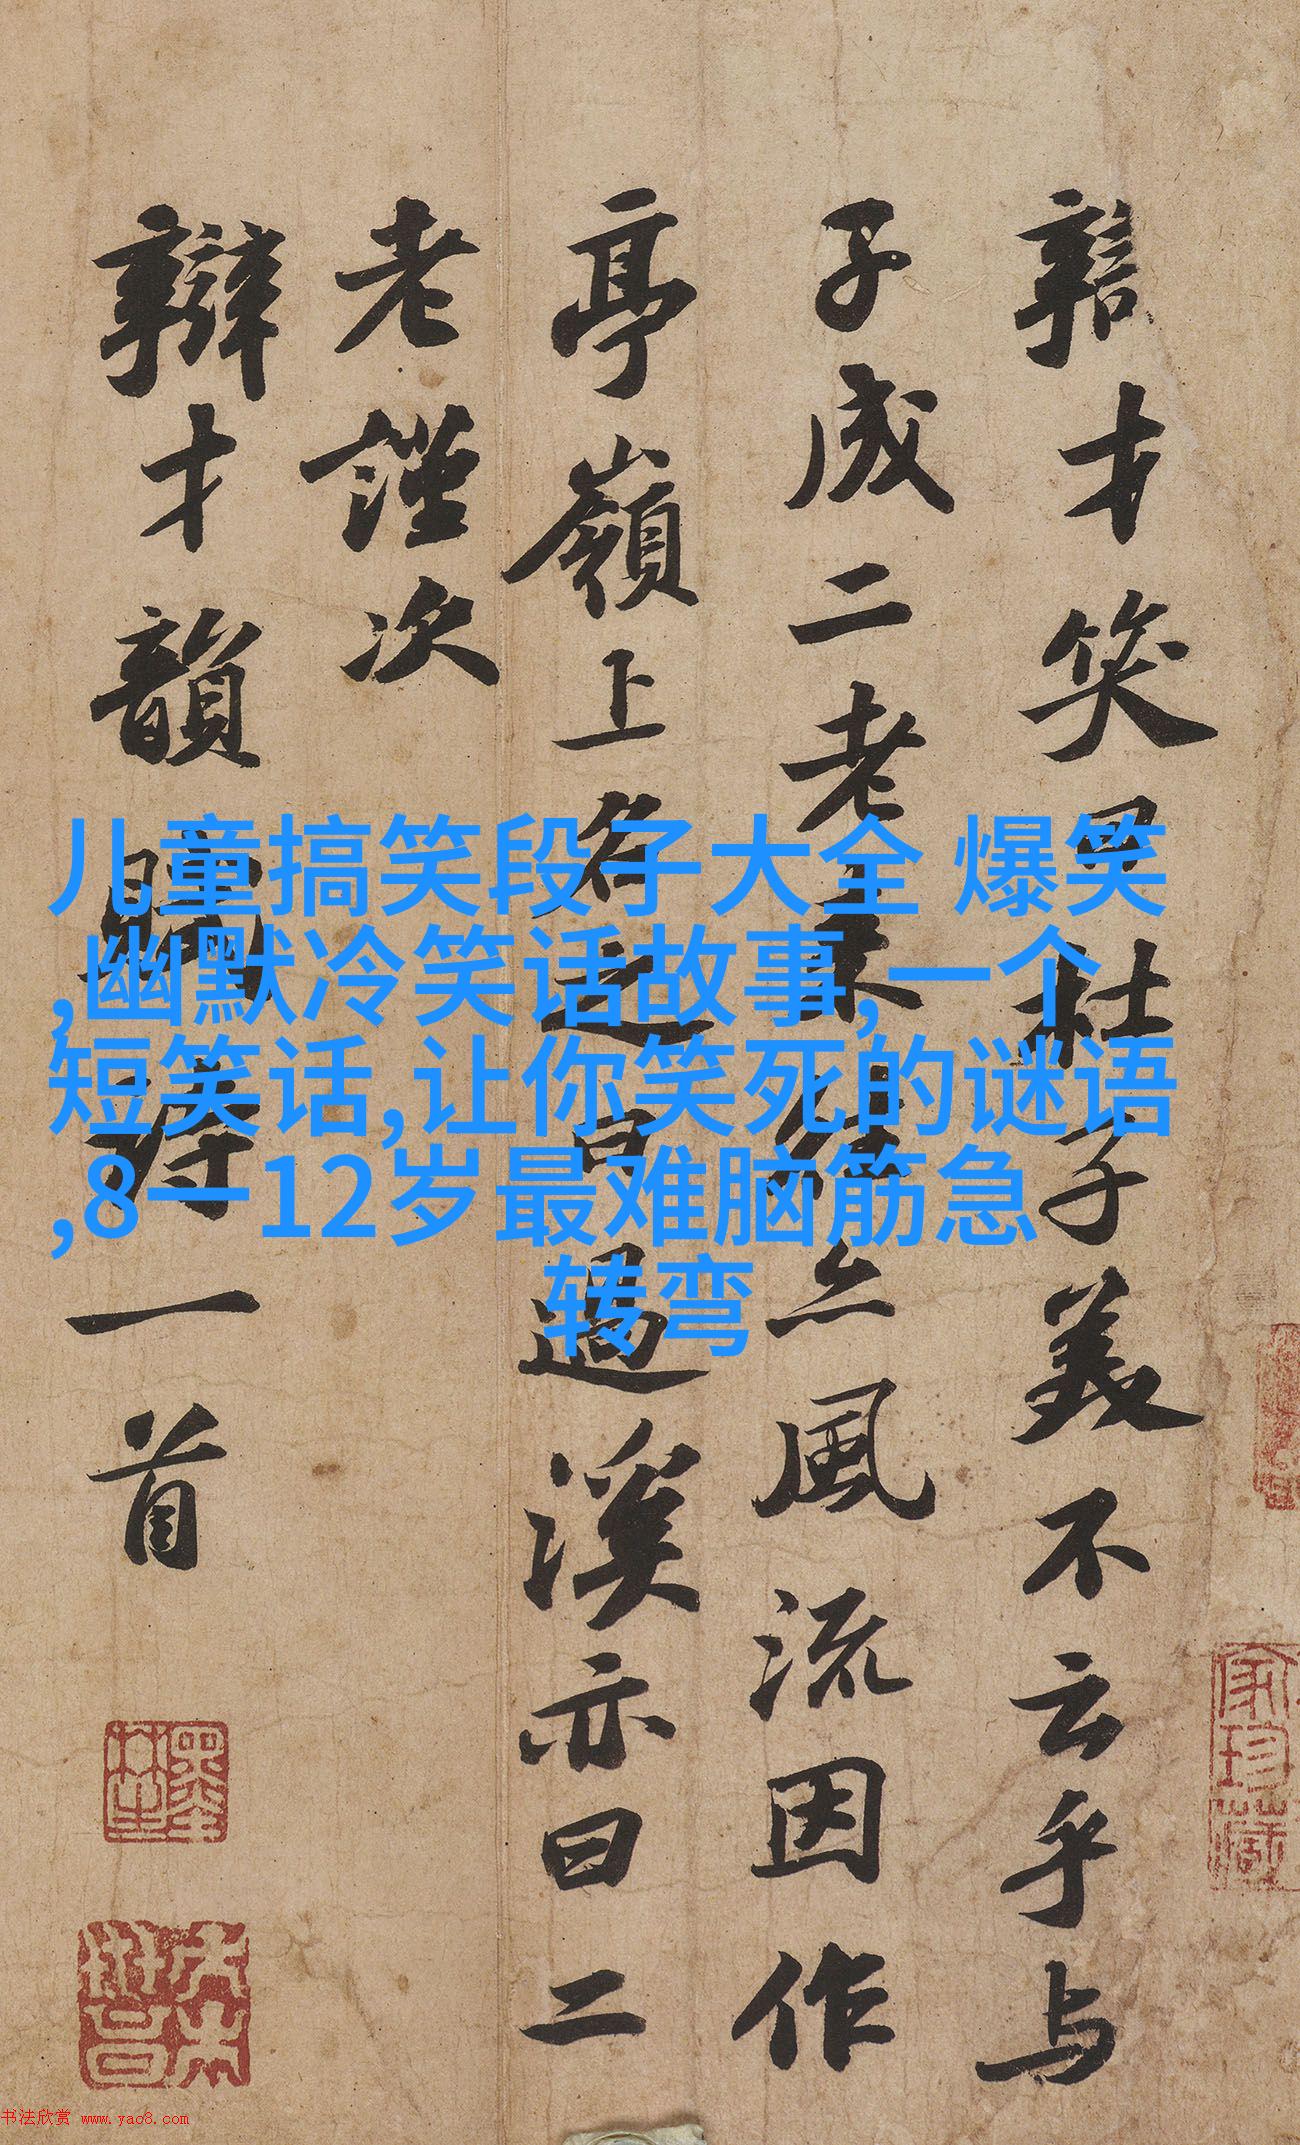 辯才笑曰杜子美不云乎与
子成二老来往亦風流因作
亭嶺上名之曰過溪亦曰二
老謹次
辯才韻賦詩一首
儿童搞笑段子大全 爆笑
,幽默冷笑话故事,一个
短笑话,让你笑死的谜语
,8一12岁最难脑筋急
转弯
家珍藏
书法欣赏 www.yac8.com